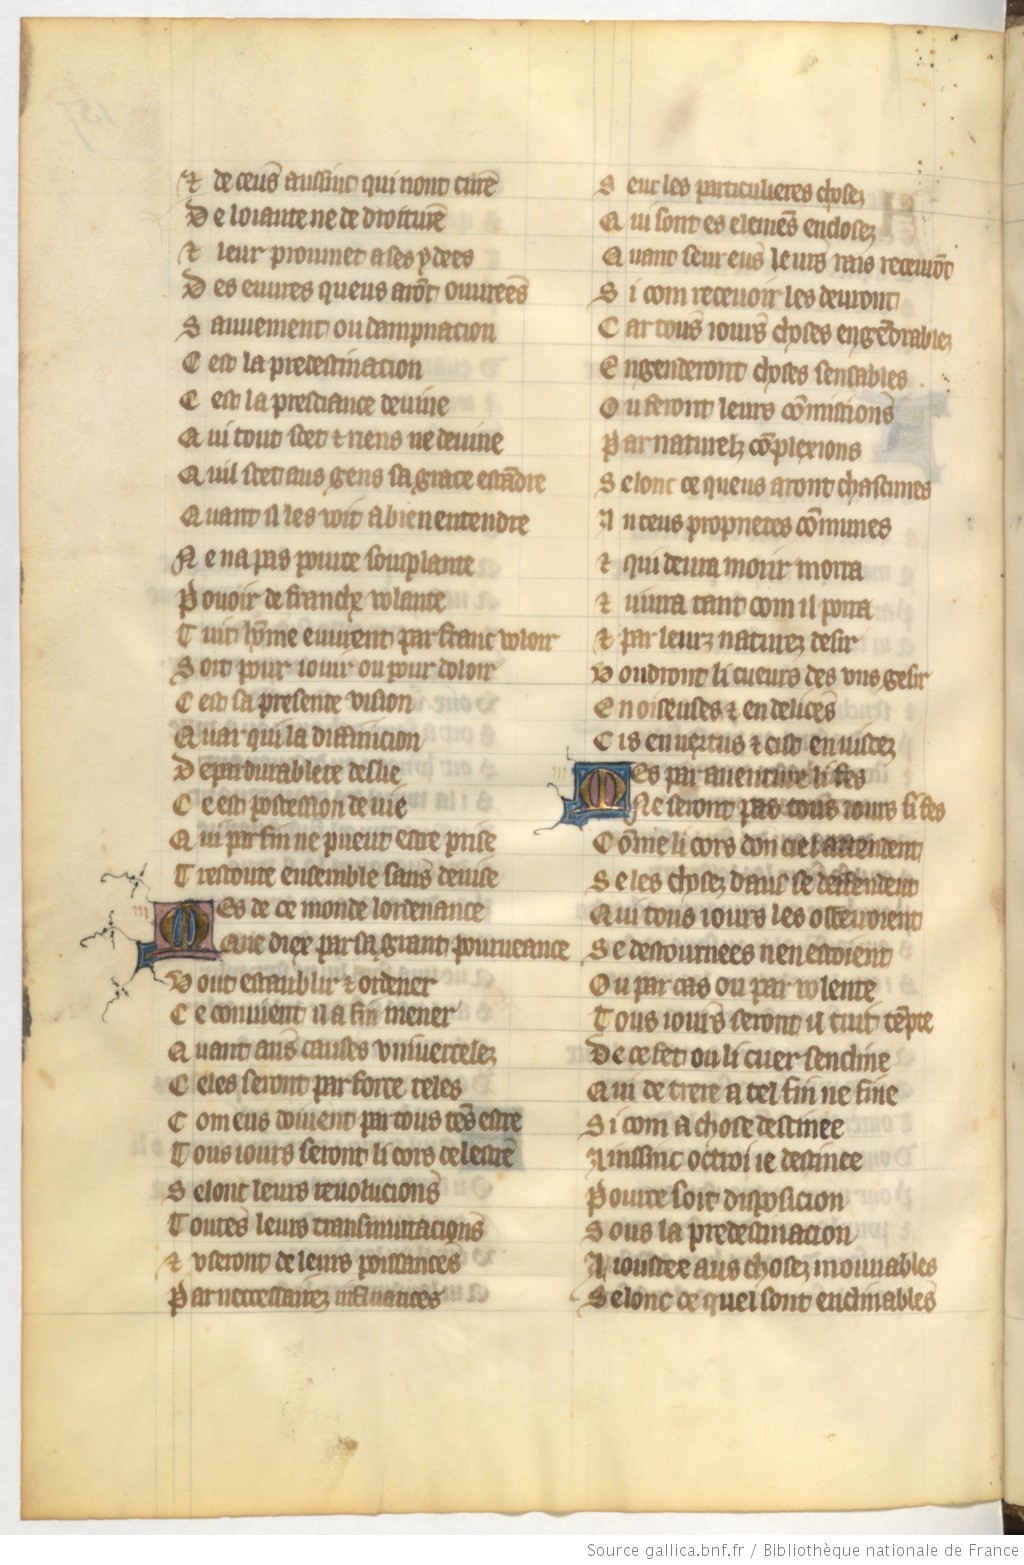 ⁊ de ceus̄ aussinc qui nont cure
De loiaute ne de droiture
⁊ leur promet a ses ydees
Des euures queus arōt ouurees
Sauuement ou dampnacion
Cest la predestinacion
Cest la presciance deuine
Qui tout scet ⁊ riens ne deuine
Quil scet aus gens sa grace estādre
Quant il les voit a bien entendre
Ne na pas pource souplante
Pouoir de franche volante
Tuit hōme euurent par franc voloir
Soit pour iouir ou pour doloir
Cest sa presente vision
Quar qui la diffinicion
De pardurablete deslie
Ce est possession de vie
Qui par fin ne pueut estre prise
Trestoute ensemble sans deuise
Mes de ce monde lordenance
Que diex par sa grant pourueance
Vout establir ⁊ ordener
Ce conuient il a fin mener
Quant aus causes vniuercelez
Celes seront par force teles
Com eus doiuent par tous tēs estre
Tous iours seront li cors celestre
Selonc leurs reuolucions
Toutes leurs transmutacions
⁊ vseront de leurs poissances
Par neccessairez influances
Seur les particulieres chosez
Qui sont es elemēs enclosez
Quant seur eus leurs rais receurōt
Si com receuoir les deuront
Car tous iours choses engēdrablez
Engenderont choses sensables
Ou feront leurs cōmistions
Par naturelz cōplexions
Selonc ce queus aront chascunes
An ceus propriетes cōmunes
⁊ qui deura morir morra
⁊ viura tant com il porra
⁊ par leurz naturez desir
Voudront li cueurs des vns gesir
En oiseuses ⁊ en delices
Cis en vertus ⁊ cist en vicez
Mes par auenture li fes
Ne seront pas tous iours si fes
Cōme li cors don ciel attendent
Se les chosez daus se deffendent
Qui tous iours les obeiroient
Se destournees nen estoient
Ou par cas ou par volente
Tous iours seront il tuit tēpte
De ce fet ou li cuer sencline
Qui de trere a tel fin ne fine
Si com a chose destinee
Ainssinc octroi ie destinee
Pource soit disposicion
Sous la predestinacion
Aioustee aus chosez mouuables
Selonc ce quel sont enclinables
Source gallica.bnf.fr / Bibliothèque nationale de France